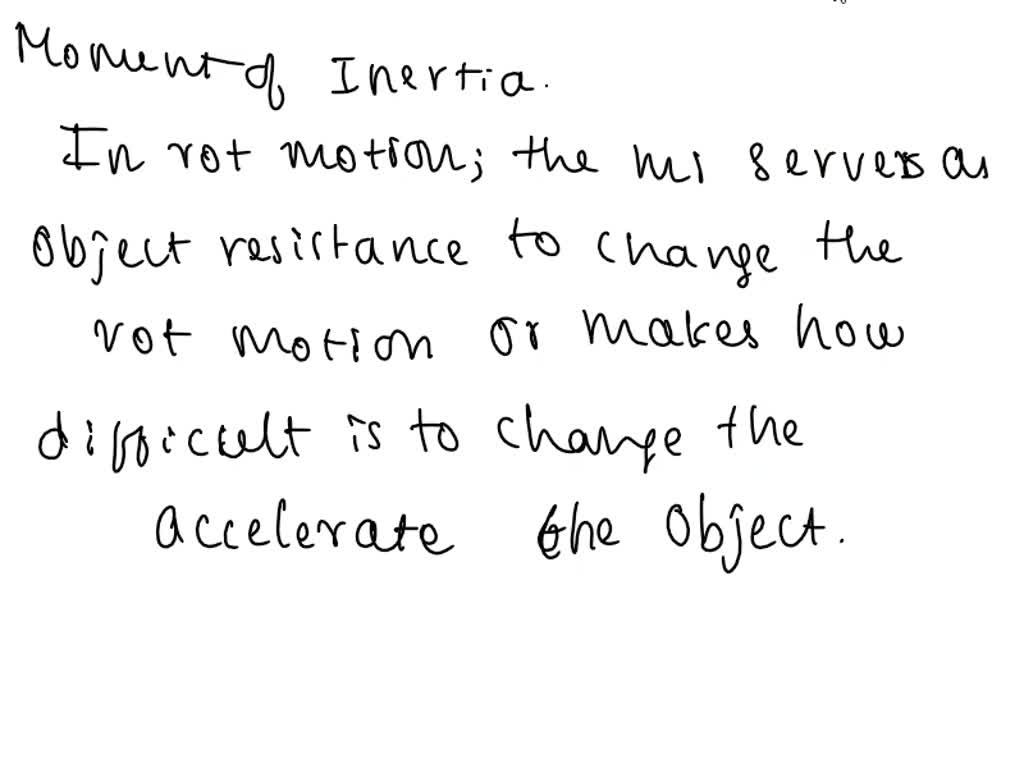 Moment of Inertia.
In rot motion; the MI servers as
object resistance to change the
rot motion or makes how
difficult is to change the
accelerate the object.